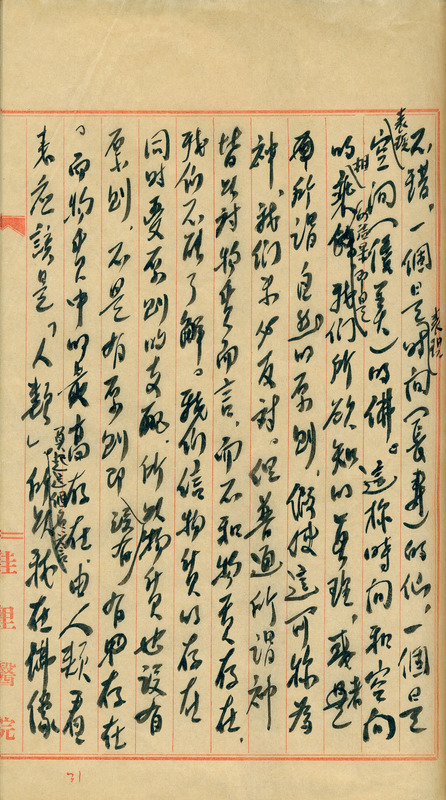 不錯，一個是表現時間（長壽）的仙，一個是
表現空間（優美）的佛。這種時間和空間
的相乘解我們所欲知的真理，或者是
所謂自然的原則，假使這可稱為
神，我們未必反對。但普通所謂神
皆以對物質而言，而不和物質存在，
我們不能了解。我們信物質的存在
同時受原則的支配，所以物質也設有
原則，不是有原則即沒有物存在
。而物質中的最高存在，由人類看
來應該是「人類」，所以我在佛像
桂里醫院
71